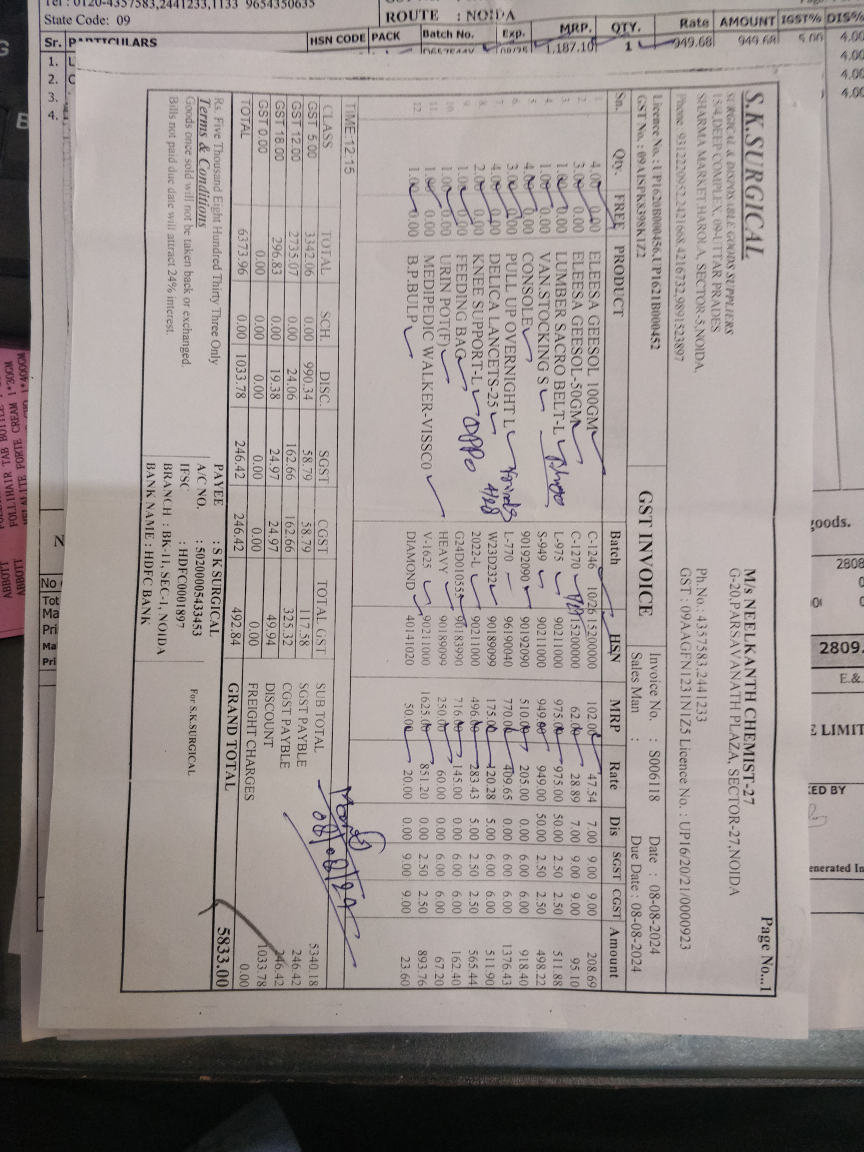 Tel : 0120-4357583,2441233,1133 9654350635
State Code: 09
ROUTE : NOIDA
Sr. PARTICULARS HSN CODE PACK Batch No. Exp. MRP. QTY. Rate AMOUNT IGST% DIS%
1. 1,187.10 1 949.68 949.68 5.00 4.00
2. 4.00
3. 4.00
4. 4.00
Page No...1
S.K.SURGICAL
SURGICAL & DISPOSABLE GOODS SUPPLIERS
15/4,DEEP COMPLEX, 09-UTTAR PRADES
SHARMA MARKET HAROLA, SECTOR-5,NOIDA,
Phone 9312220952,2421668,4216732,9891523897
M/s NEELKANTH CHEMIST-27
G-20,PARSAVANATH PLAZA, SECTOR-27,NOIDA
Ph.No.: 4357583,2441233
GST : 09AAGFN1231N1Z5 Licence No. : UP16/20/21/0000923
Licence No. : UP1620B000456,UP1621B000452
GST No. : 09AISPK8398K1Z2
GST INVOICE
Invoice No. : S006118 Date : 08-08-2024
Sales Man : Due Date : 08-08-2024
Sn. Qty. FREE PRODUCT Batch HSN MRP Rate Dis SGST CGST Amount
1 4.00 0.00 ELEESA GEESOL 100GM C-1246 10/26 15200000 102.00 47.54 7.00 9.00 9.00 208.69
2 3.00 0.00 ELEESA GEESOL-50GM C-1270 15200000 62.00 28.89 7.00 9.00 9.00 95.10
3 1.00 0.00 LUMBER SACRO BELT-L L-975 90211000 975.00 975.00 50.00 2.50 2.50 511.88
4 1.00 0.00 VAN.STOCKING S S-949 90211000 949.00 949.00 50.00 2.50 2.50 498.22
5 4.00 0.00 CONSOLE 90192090 90192090 510.00 205.00 0.00 6.00 6.00 918.40
6 3.00 0.00 PULL UP OVERNIGHT L L-770 96190040 770.00 409.65 0.00 6.00 6.00 1376.43
7 4.00 0.00 DELICA LANCETS-25 W23D232 90189099 175.00 120.28 5.00 6.00 6.00 511.90
8 2.00 0.00 KNEE SUPPORT-L OPPO 2022-L 90211000 496.00 283.43 5.00 2.50 2.50 565.44
9 1.00 0.00 FEEDING BAG G24D01055 90183990 716.00 145.00 0.00 6.00 6.00 162.40
10 1.00 0.00 URIN POT(F) HEAVY 90189099 250.00 60.00 0.00 6.00 6.00 67.20
11 1.00 0.00 MEDIPEDIC WALKER-VISSCO V-1625 90211000 1625.00 851.20 0.00 2.50 2.50 893.76
12 1.00 0.00 B.P.BULP DIAMOND 40141020 50.00 20.00 0.00 9.00 9.00 23.60
TIME:12:15
08/08/24
CLASS TOTAL SCH. DISC. SGST CGST TOTAL GST
GST 5.00 3342.06 0.00 990.34 58.79 58.79 117.58
GST 12.00 2735.07 0.00 24.06 162.66 162.66 325.32
GST 18.00 296.83 0.00 19.38 24.97 24.97 49.94
GST 0.00 0.00 0.00 0.00 0.00 0.00
TOTAL 6373.96 0.00 1033.78 246.42 246.42 492.84
SUB TOTAL 5340.18
SGST PAYBLE 246.42
CGST PAYBLE 246.42
DISCOUNT 1033.78
FREIGHT CHARGES 0.00
GRAND TOTAL 5833.00
Rs. Five Thousand Eight Hundred Thirty Three Only
Terms & Conditions
Goods once sold will not be taken back or exchanged.
Bills not paid due date will attract 24% interest.
PAYEE : S K SURGICAL
A/C NO. : 50200005433453
IFSC : HDFC0001897
BRANCH : BK-11, SEC-1, NOIDA
BANK NAME : HDFC BANK
For S.K.SURGICAL
goods.
2808
2809.
E.&
E LIMIT
ED BY
enerated In
No
Tot
Ma
Pri
Ma
Pri
FORTE CREAM 1*30GM
FOLLIHAIR TAB
ABBOTT
ABBOTT